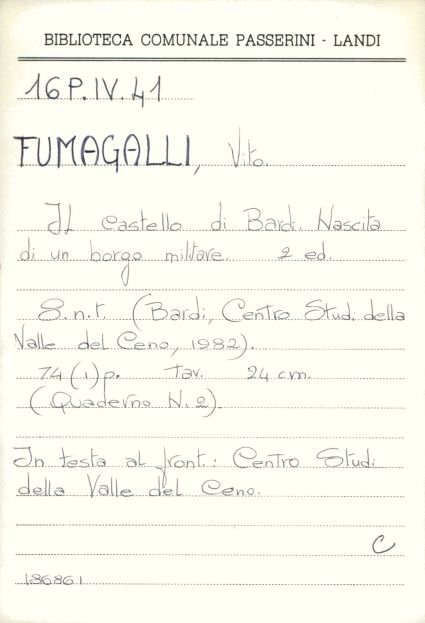 BIBLIOTECA COMUNALE PASSERINI - LANDI
16P.IV.41
FUMAGALLI, Vito.
Il castello di Bardi. Nascita
di un borgo militare. 2 ed.
S.n.t. (Bardi, Centro Studi della
Valle del Ceno, 1982).
74(1)p. Tav. 24 cm.
(Quaderno N. 2).
In testa al front.: Centro Studi
della Valle del Ceno.
C
186861